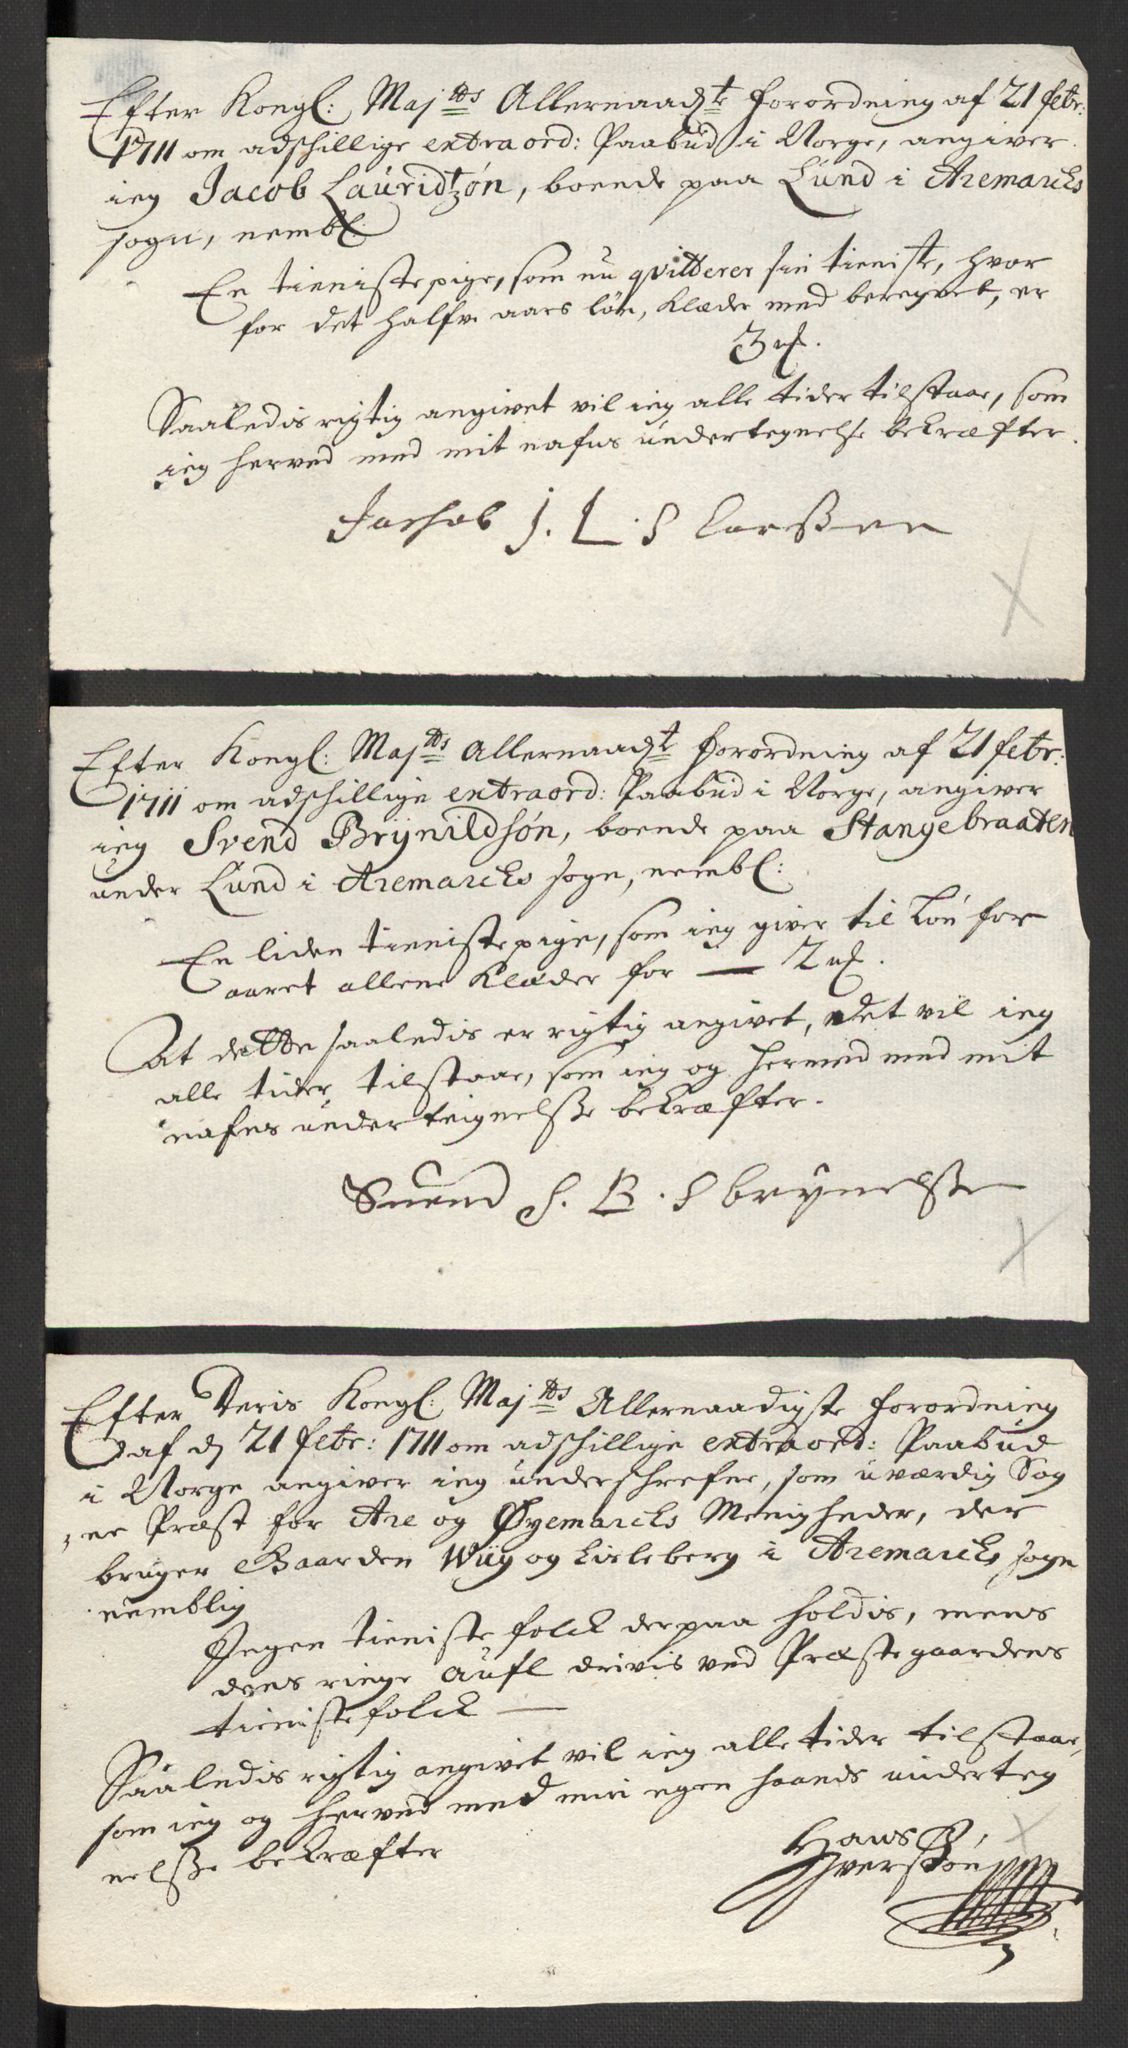 Efter Kongl: Maj.ts Allernaad.te forordning af 21 febr:
1711 om adschillige extraord: Paabud i Norge, angiver
ieg Jacob Lauridtzón, boende paa Lund i Aremarcks
sogn, nembl:
En tienistepige, som nu qvitterer sin tieniste, hvor
for det halfve aars løn, klæder med beregnet, er
3 rd.
Saaledis rigtig angivet vil ieg alle tider tilstaae, som
ieg herved med mit nafns undertegnelse bekræfter.
Jachob J. L. S Larssen
Efter Kongl: Maj.ts Allernaad.te forordning af 21 febr:
1711 om adschillige extraord: Paabud i Norge, angiver
ieg Svend Brÿnildsón, boende paa Stangebraaten
under Lund i Aremarcks sogn, nembl:
En liden tienistepige, som ieg giver til løn for
aaret allene klæder for — 2 rd.
At dette saaledis er rigtig angivet, det vil ieg
alle tider tilstaae, som ieg og hermed med mit
nafns underteignelsse bekræfter.
Suend S. B. S brÿnelsse
Efter Deris Kongl: Maj.ts Allernaadigste forordning
af d. 21 febr: 1711 om adschillige extraord: Paabud
i Norge angiver ieg underschrefne, som uværdig Sog
ne Præst for Are og Øyemarcks Menigheder, der
bruger Gaarden Wiig og Lisleberg i Aremarcks sogn
nemblig
Ingen tieniste folck derpaa holdis, mens
dens ringe aufl drivis ved Præstegaardens
tienistefolck —
Saaledis rigtig angivet vil ieg alle tider tilstaae,
som ieg og herved med min egen haands underteg
nelsse bekræfter
Hans
Iverssøn